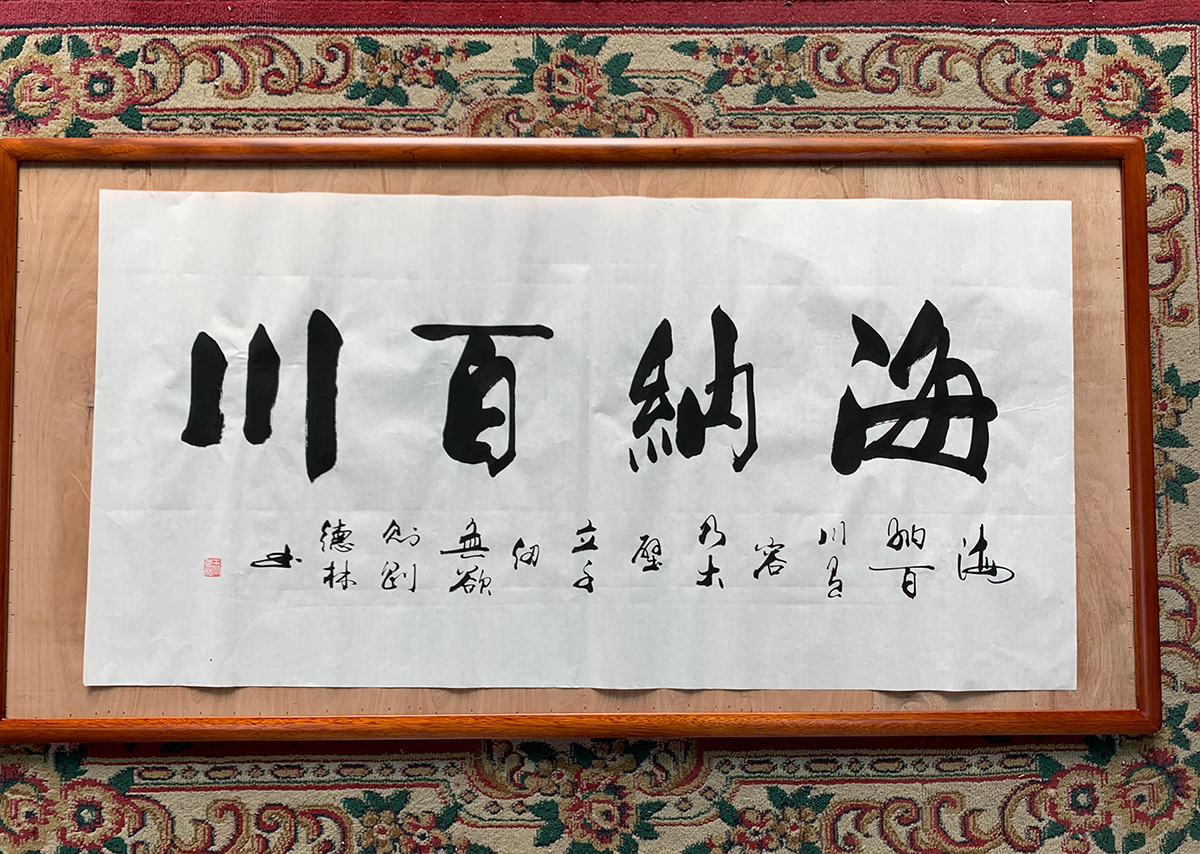 海納百川
海
納百
川有
容
乃大
壁
立千
仞
無欲
則剛
德林
书